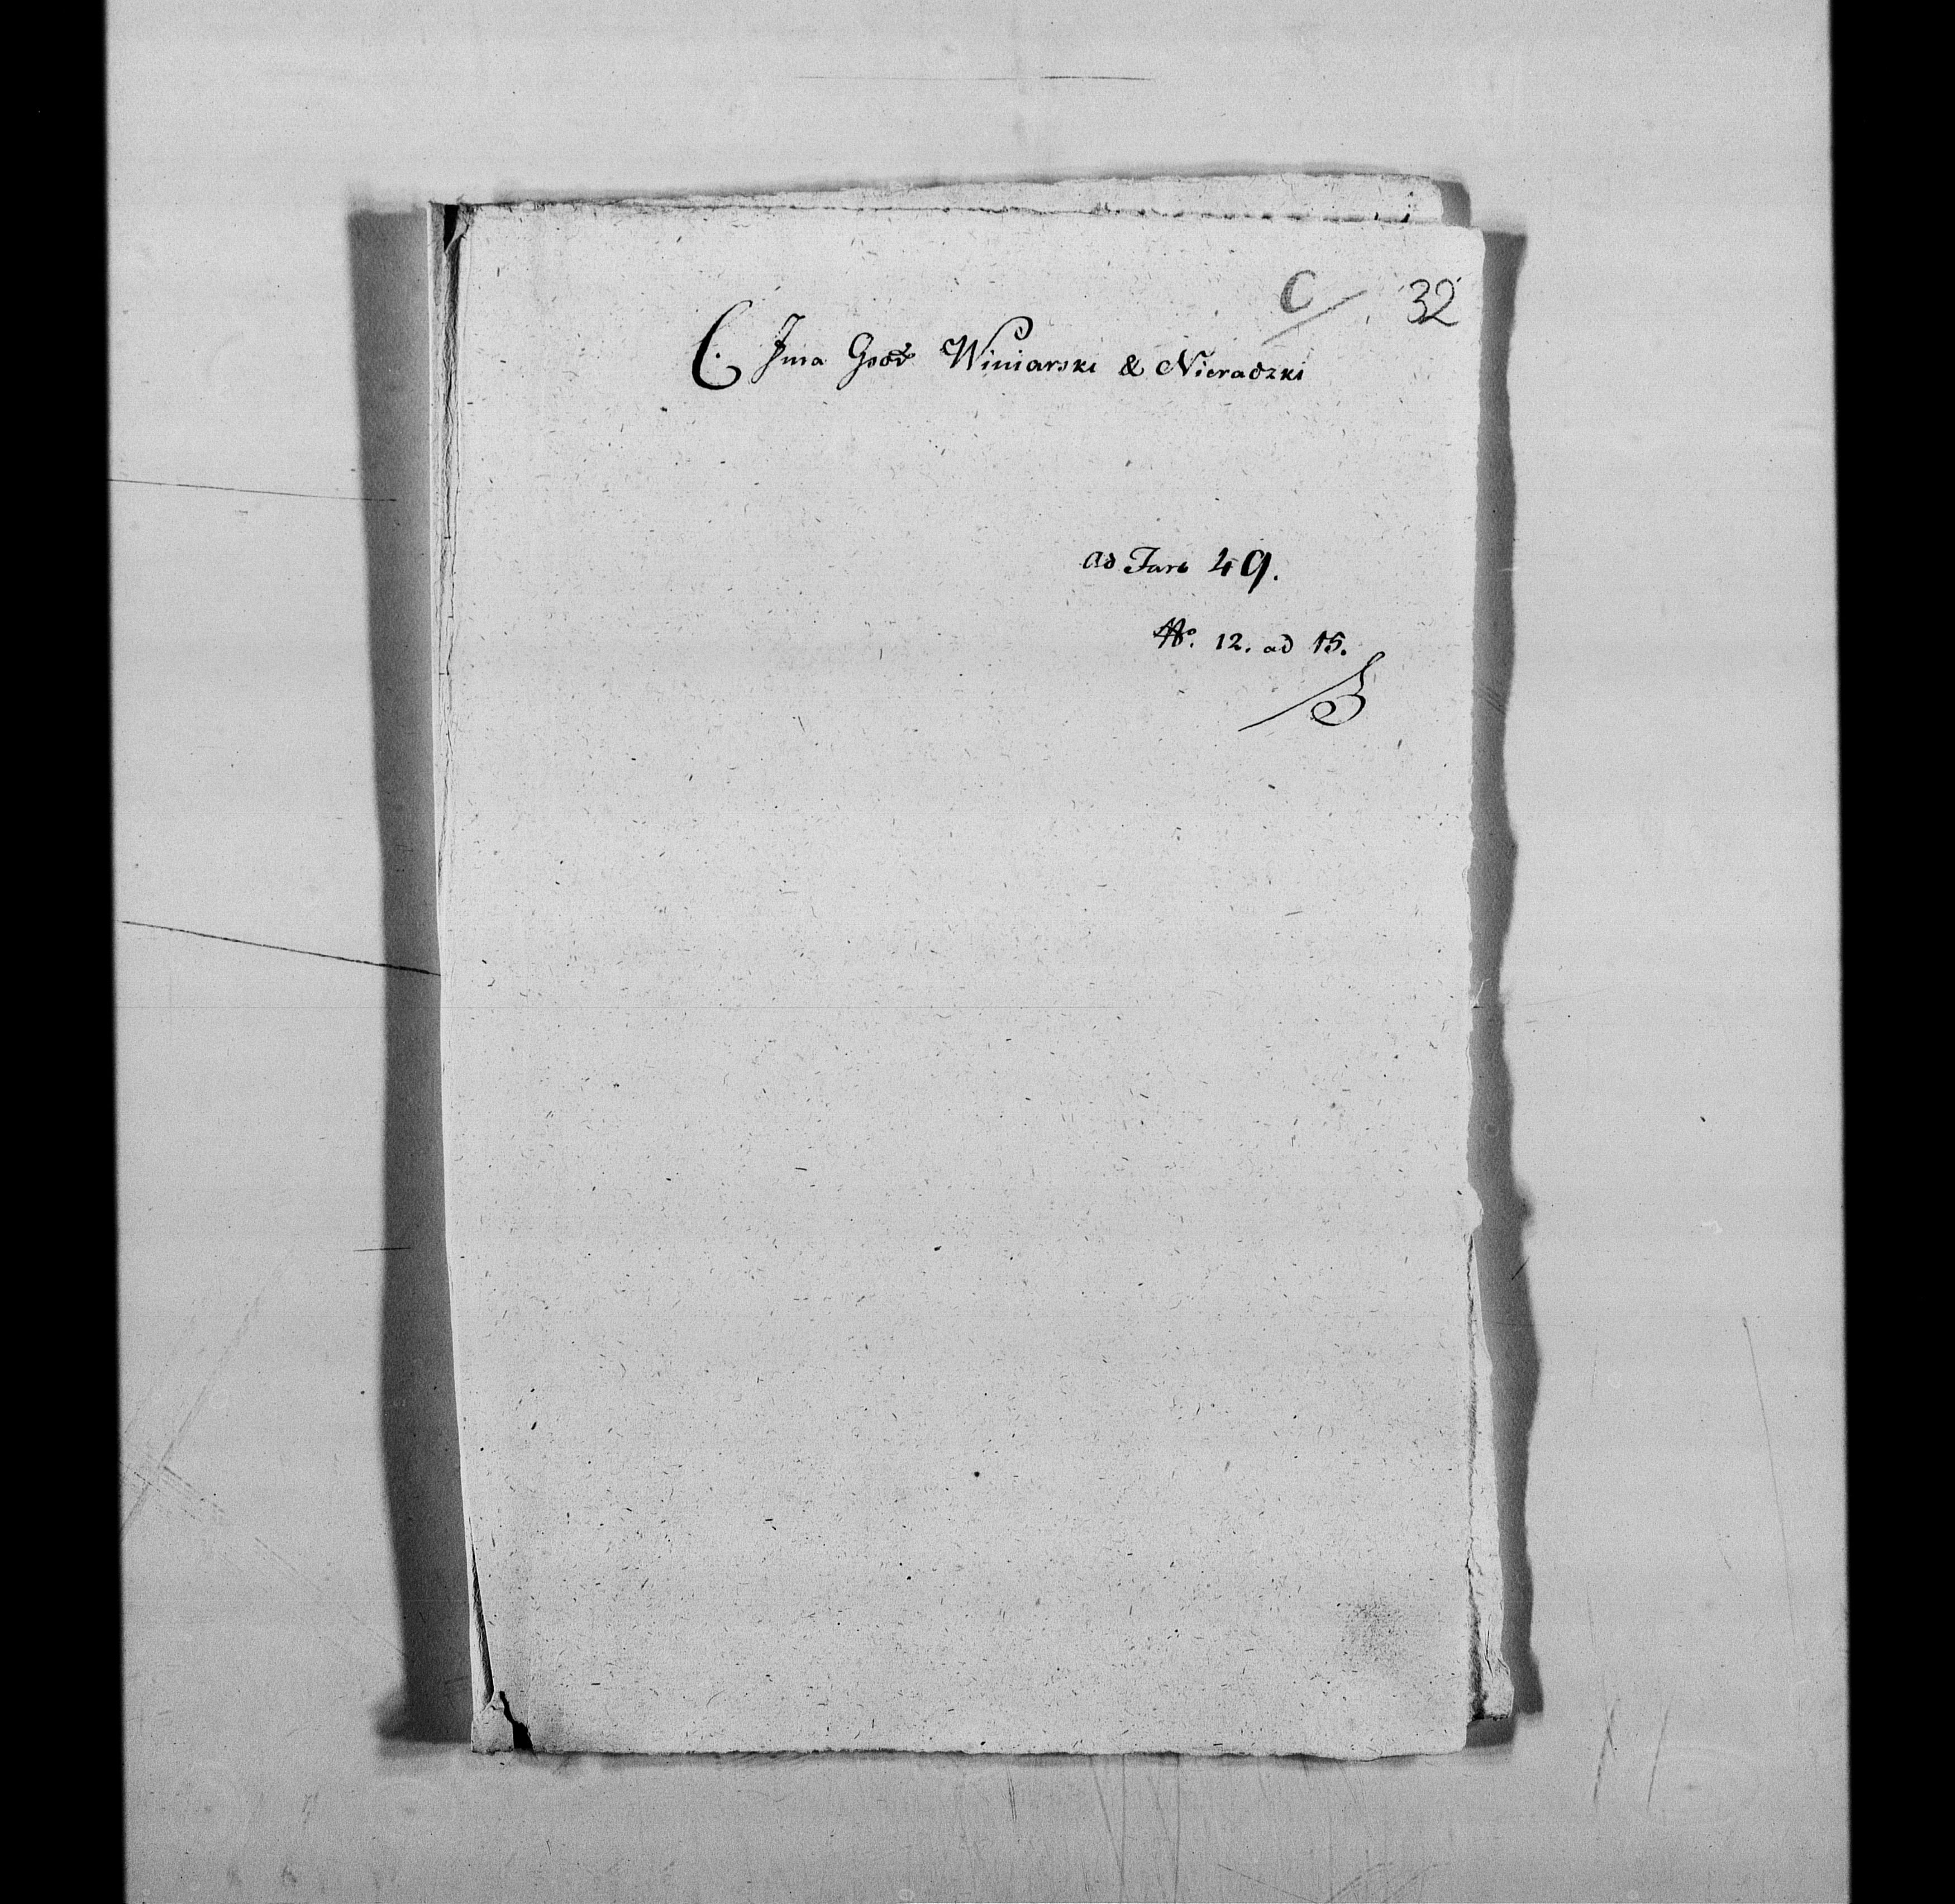 C 32
C. Jura Good Winiarski & Nieradzki
ad Fasc 49.
No. 12. ad 15.